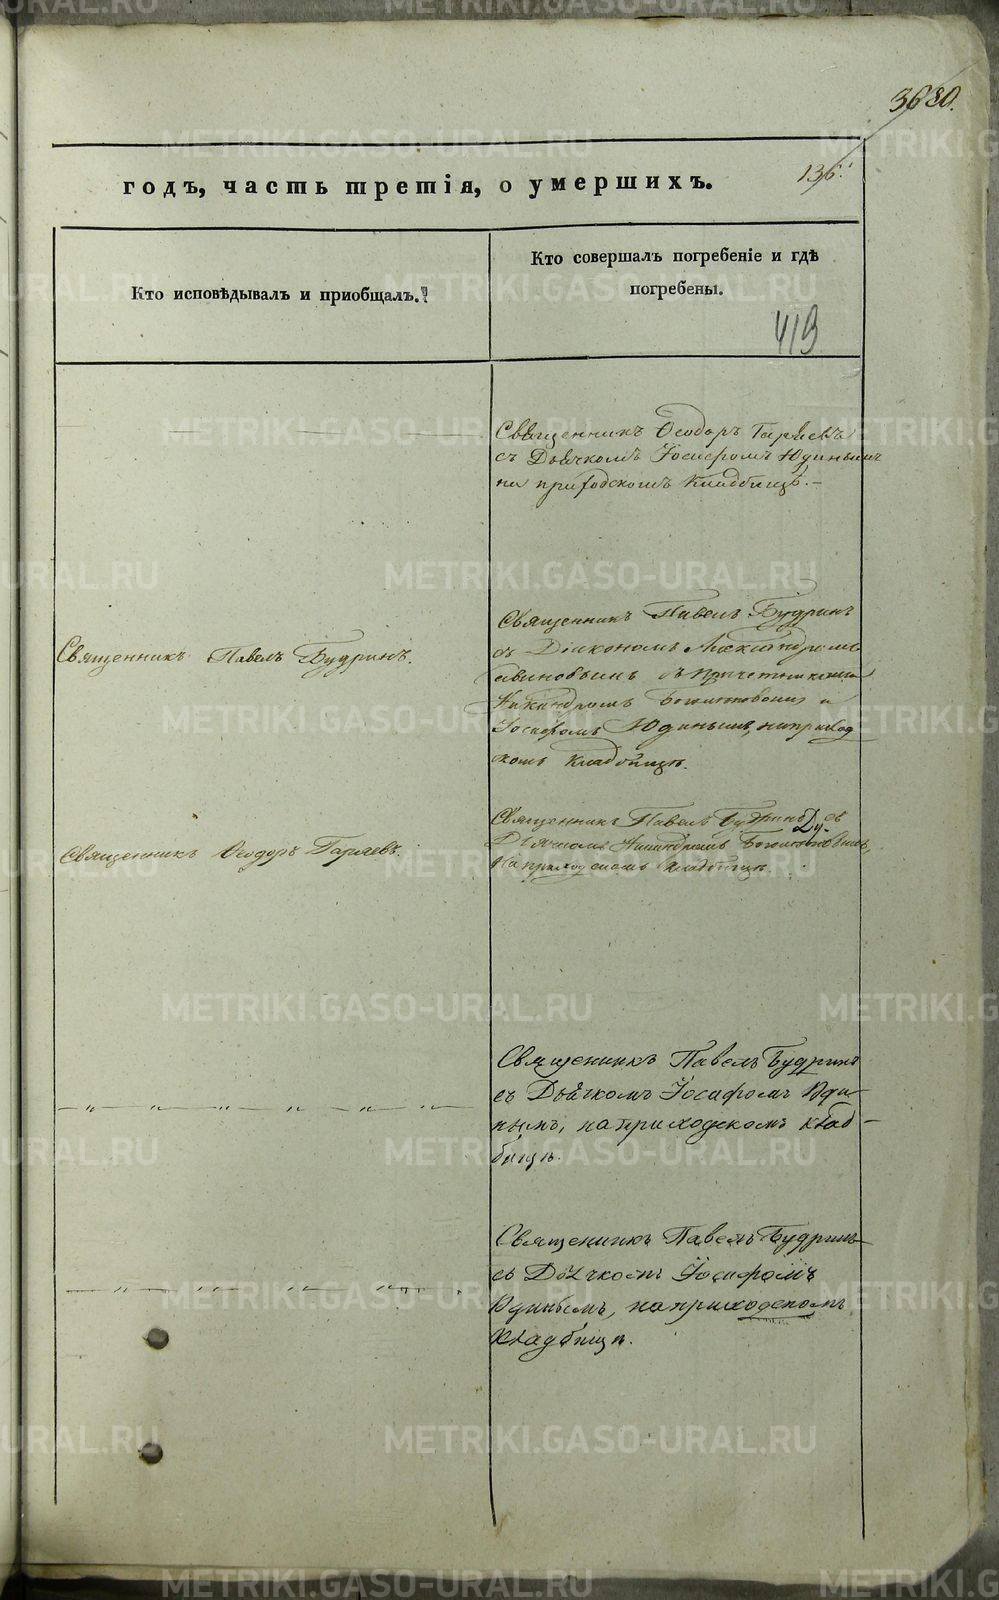 3680.
136.
годъ, часть третія, о умершихъ.
Кто исповѣдывалъ и приобщалъ.
Кто совершалъ погребеніе и гдѣ
погребены.
419
Священникъ Ѳеодоръ Гаряевъ
съ Дьячкомъ Іосифомъ Юдинымъ
на приходскомъ кладбищѣ.-
Священникъ Павелъ Будринъ.
Священникъ Павелъ Будринъ
съ Діакономъ Александромъ
съ причетниками
Никандромъ и
Іосифомъ Юдинымъ, на приход
скомъ кладбищѣ.
Священникъ Ѳеодоръ Гаряевъ.
Священникъ Павелъ Будринъ съ
Дьячкомъ Никандромъ
На приходскомъ кладбищѣ.
Священникъ Павелъ Будринъ
съ Дьячкомъ Іосифомъ Юди-
нымъ, на приходскомъ клад-
бищѣ.
Священникъ Павелъ Будринъ
съ Дьячкомъ Іосифомъ
Юдинымъ, на приходскомъ
кладбищѣ.
METRIKI.GASO-URAL.RU